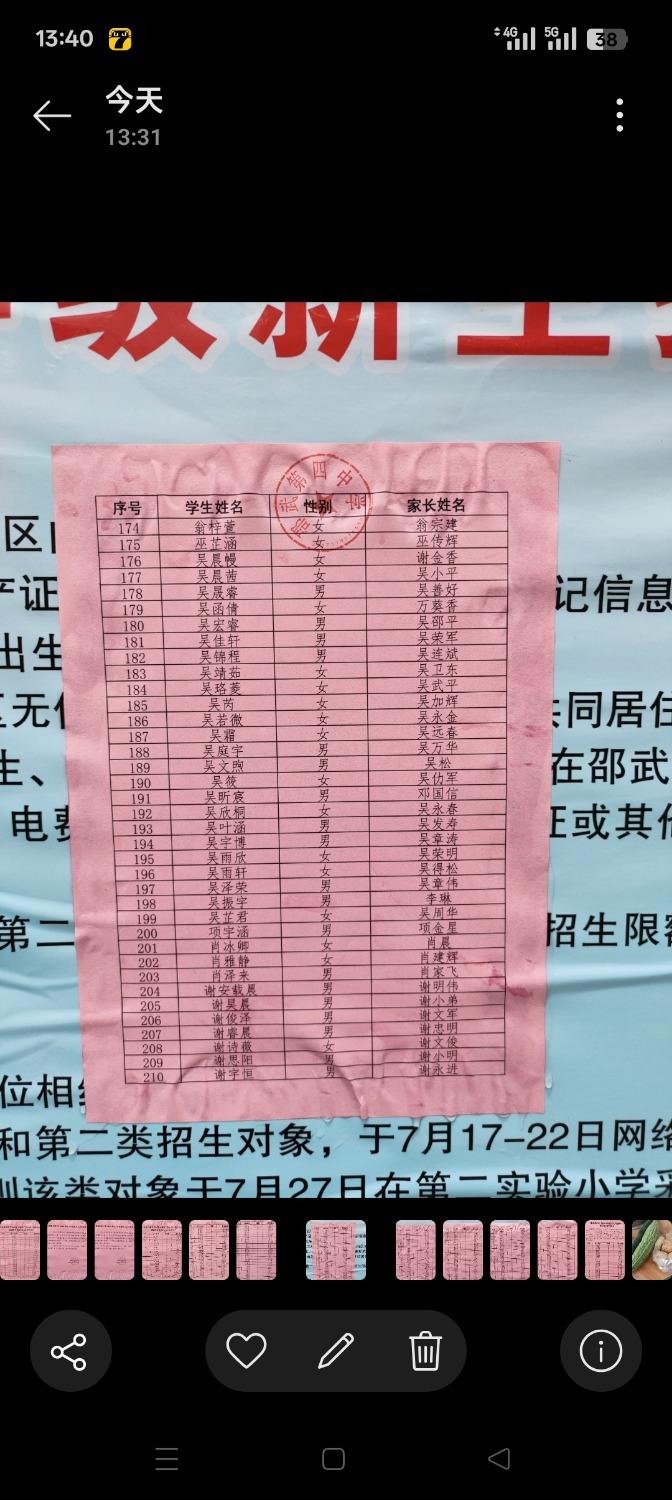 13:40
4G 5G 38
今天
13:31
级新生
邵武第四中学
序号 学生姓名 性别 家长姓名
174 翁梓萱 女 翁宗建
175 巫芷涵 女 巫传辉
176 吴晨幔 女 谢金香
177 吴晨茜 女 吴小平
178 吴晟睿 男 吴善好
179 吴函倩 女 万葵香
180 吴宏睿 男 吴邵平
181 吴佳轩 男 吴荣军
182 吴锦程 男 吴连斌
183 吴靖茹 女 吴卫东
184 吴珞菱 女 吴武平
185 吴芮 女 吴加辉
186 吴若微 女 吴永金
187 吴霜 女 吴远春
188 吴庭宇 男 吴万华
189 吴文煦 男 吴松
190 吴筱 女 吴仂军
191 吴昕宸 男 邓国信
192 吴欣桐 女 吴永春
193 吴叶涵 男 吴发寿
194 吴宇博 男 吴章涛
195 吴雨欣 女 吴荣明
196 吴雨轩 女 吴得松
197 吴泽荣 男 吴章伟
198 吴振宇 男 李琳
199 吴芷君 女 吴周华
200 项宇涵 男 项金星
201 肖冰卿 女 肖晨
202 肖雅静 女 肖建辉
203 肖泽来 男 肖家飞
204 谢安载晨 男 谢明伟
205 谢昊晨 男 谢小弟
206 谢俊泽 男 谢文军
207 谢睿晨 男 谢忠明
208 谢诗薇 女 谢文俊
209 谢思阳 男 谢小明
210 谢宇恒 男 谢永进
区
产证 记信息
出生
区无 共同居住
生、 在邵武
电费 证或其他
第二 招生限额
位相
和第二类招生对象，于7月17-22日网络
则该类对象于7月27日在第二实验小学采